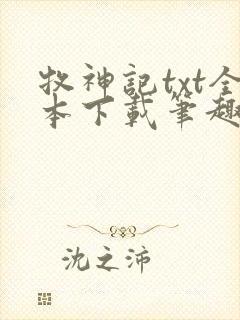 牧神記txt全
本下載筆趣
沈之沛